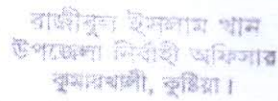 রাজীবুল ইসলাম খান
উপজেলা নির্বাহী অফিসার
কুমারখালী, কুষ্টিয়া।